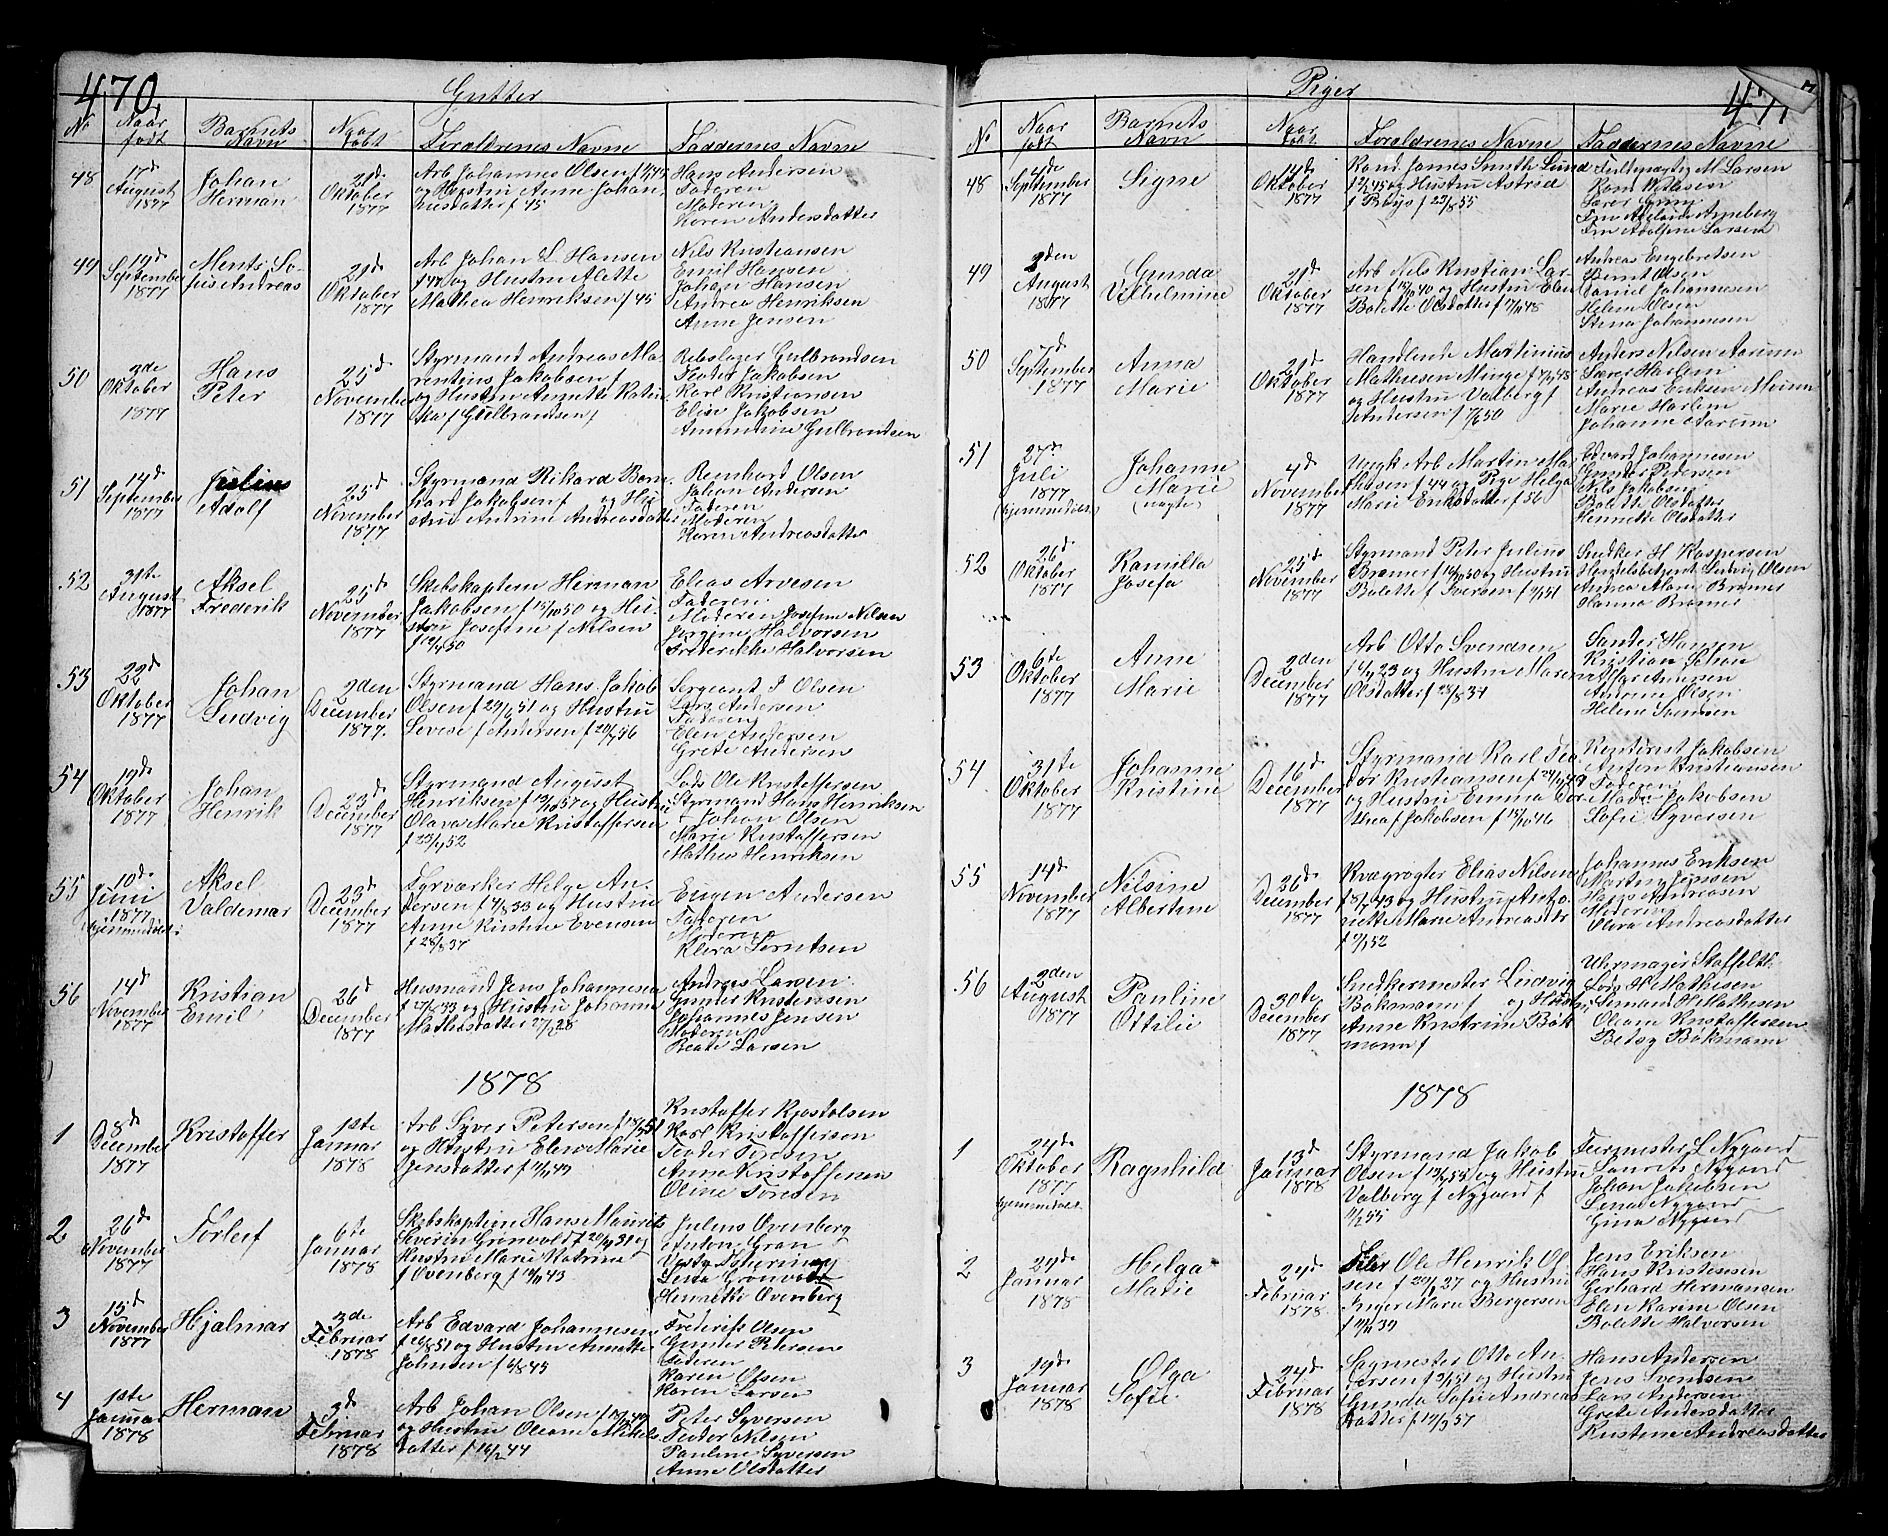 470
Gutter
No
Naar født
Barnets Navn
Naar døbt
Forældrenes Navne
Faddernes Navne
48
17de August 1877
Johan Herman
21de Oktober 1877
Arb Johannes Olsen
og Hustru Anne Johan-
nesdatter f 45
Hans Andersen
Faderen
Moderen
Karen Andersdatter
49
19de September 1877
Ments So-
fus Andreas
21de Oktober 1877
Arb Johan L. Hansen
og Hustru Alette
Mathea Henriksen f 45
Nils Kristiansen
Emil Hansen
Johan Hansen
Andrea Henriksen
Anne Jensen
50
3de Oktober 1877
Hans Peter
25de November 1877
Styrmand Andreas Ma-
rentius Jakobsen f
og Hustru Annette Katin-
ka f Gulbrandsen f
Rebslager Gulbrandsen
Theodor Jakobsen
Karl Kristiansen
Elise Jakobsen
Amundine Gulbrandsen
51
14de September 1877
Julius Adolf
25de November 1877
Styrmand Rikard Bern-
hard Jakobsen f og Hu-
stru Andrine Andreasdatter
Reinhard Olsen
Johan Andersen
Faderen
Moderen
Karen Andreasdatter
52
31te August 1877
Aksel Frederik
25de November 1877
Skibskaptein Herman
Jakobsen f 50 og Hu-
stru Josefine f Nilsen
Elias Arvesen
Faderen
Moderen Josefine Nilsen
Jorgine Halvorsen
Frederikke Halvorsen
53
22de Oktober 1877
Johan Ludvig
2den December 1877.
Styrmand Hans Jakob
Olsen f 29/6 51 og Hustru
Levise f Andersen f 56
Sergeant P Olsen
Lars Andersen
Faderen
Elen Andersen
Grete Andersen
54
19de Oktober 1877
Johan Henrik
23de December 1877
Styrmand August
Henriksen f 51 og Hustru
Olava Marie Kristoffersen
f 52
Lods Ole Kristoffersen
Styrmand Hans Henriksen
Johan Olsen
Marie Kristoffersen
Mathea Henriksen
55
10de Juni 1877
hjemmedøbt
Aksel Valdemar
23de December 1877
Fyrværker Helge An-
dersen f 33 og Hustru
Anne Kirstine Evensen
f 28/8 37
Eugen Andersen
Faderen
Moderen
Klara Berntsen
56
14de November 1877
Kristian Emil
26de December 1877
Husmand Jens Johannesen
f 33 og Hustru Johanne
Mathisdatter 28
Andreas Larsen
Gunder Kristensen
Johannes Jensen
Moderen
Beate Larsen
1878
1
8de December 1877
Kristoffer
1ste Januar 1878
Arb Syver Petersen f 51
og Hustru Elen Marie
Jensdatter f 49
Kristoffer Kjostolsen
Karl Kristoffersen
Teodor Toresen
Anne Kristoffersen
Oline Toresen
2
26de November 1877
Torleif
6te Januar 1878
Skibskaptein Hans Mauritz
Severin Grønvold f 31 og
Hustru Marie Katrine
f Ovenberg f 43
Julius Ovenberg
Anton Gran
Lena Grønvold
Henrikke Ovenberg
3
15de November 1877
Hjalmar
3de Februar 1878
Arb Edvard Johannesen
f 51 og Hustru Annette
Johnsen f 6/8 45
Frederik Olsen
Gunder Petersen
Faderen
Karen Olsen
Karen Larsen
4
1ste Januar 1878
Herman
3de Februar 1878
Arb Johan Olsen
og Hustru Oleane Mikkels-
datter f 14/2 44
Peter Syversen
Teodor Nilsen
Pauline Syversen
Anne Olsdatter
471
Piger
No
Naar født
Barnets Navn
Naar døbt
Forældrenes Navne
Faddernes Navne
48
4de September 1877
Signe
14de Oktober 1877
Kand James Smith Lund
f 45 og Hustru Astrid
f Bugge f 23/8 55
Fuldmægtig M Larsen
Frøken Adolfine Larsen
49
2den August 1877
Gunda Vilhelmine
21de Oktober 1877
Arb Nils Kristian Lar-
sen f 40 og Hustru Elen
Bolette Olsdatter f 48
Andreas Engebretsen
Bernt Olsen
Daniel Johannesen
Helene Olsen
Stina Johannesen
50
7de September 1877
Anna Marie
21de Oktober 1877
Handlende Martinius
Mathiesen Minge f 48
og Hustru Valborg f
Andersen f 50
Anders Nilsen Aarum
Lærer Harlem
Andreas Eriksen Moum
Marie Harlem
Johanne Aarum
51
27de Juli 1877
(hjemmedøbt)
Johanne Marie
(uægte)
4de November 1877
Ungk Arb Martin Ma-
thisen f 44 og Pige Helga
Marie Eriksdatter f 56
Edvard Johannesen
Gunder Pedersen
Nils Jakobsen
Bolette Olsdatter
Henriette Olsdatter
52
26de Oktober 1877
Kamilla Josefa
25de November 1877
Styrmand Peter Julius
Brømer f 50 og Hustru
Bolette f Iversen f 51
Snedker H Kaspersen
Handelsbetjent Ludvig Olsen
Andrea Marie Brømer
Hanna Brømer
53
6te Oktober 1877
Anne Marie
2den December 1877
Arb Otto Svendsen
f 23 og Hustru Maren
Olsdatter f 34
Sander Hansen
Kristian Johan
Andrine Olsen
Helene Svensen
54
31te Oktober 1877
Johanne Kristine
16de December 1877
Styrmand Karl Teo-
dor Kristiansen f 49
og Hustru Emma Do-
thea f Jakobsen f 46
Rentenist Jakobsen
Anton Kristiansen
Faderen
Jakobsen
Sofie Syversen
55
14de November 1877
Nilsine Albertine
26de December 1877
Kvægrøgter Elias Nilsen
f 43 og Hustru Anto-
nette Marie Andreasdtr
f 52
Johannes Eriksen
Martin Jensen
Hans Andresen
Moderen
Olava Andreasdatter
56
2den August 1877
Pauline Ottilie
30te December 1877
Snedkermester Ludvig
Bøkmann f og Hustru
Anne Kristine Bøk-
mann f
Uhrmager Staffelth
Lods H Mathisen
Sømand H Mathisen
Oleane Kristoffersen
Betsy Bøkmann
1878
1
24de Oktober 1877
hjemmedøbt
Ragnhild
13de Januar 1878
Styrmand Jakob
Olsen f 53 og Hustru
Valborg f Nygaard f
55
L Nygaard
Laurits Nygaard
Johan Jakobsen
Lena Nygaard
Gina Nygaard
2
29de Januar 1878
Helga Marie
24de Februar 1878
Ole Henrik Ol-
sen f 27 og Hustru
Inger Marie Bergersen
f 39
Jens Eriksen
Hans Kristensen
Gerhard Hermansen
Elen Karine Olsen
Bolette Halvorsen
3
19de Januar 1878
Olga Sofie
24de Februar 1878
Sagmester Otto An-
dersen f 51 og Hustru
Gunda Sofie Andreas-
datter f 57
Hans Andersen
Jens Svendsen
Lars Andersen
Grete Andersdatter
Kristine Andreasdatter